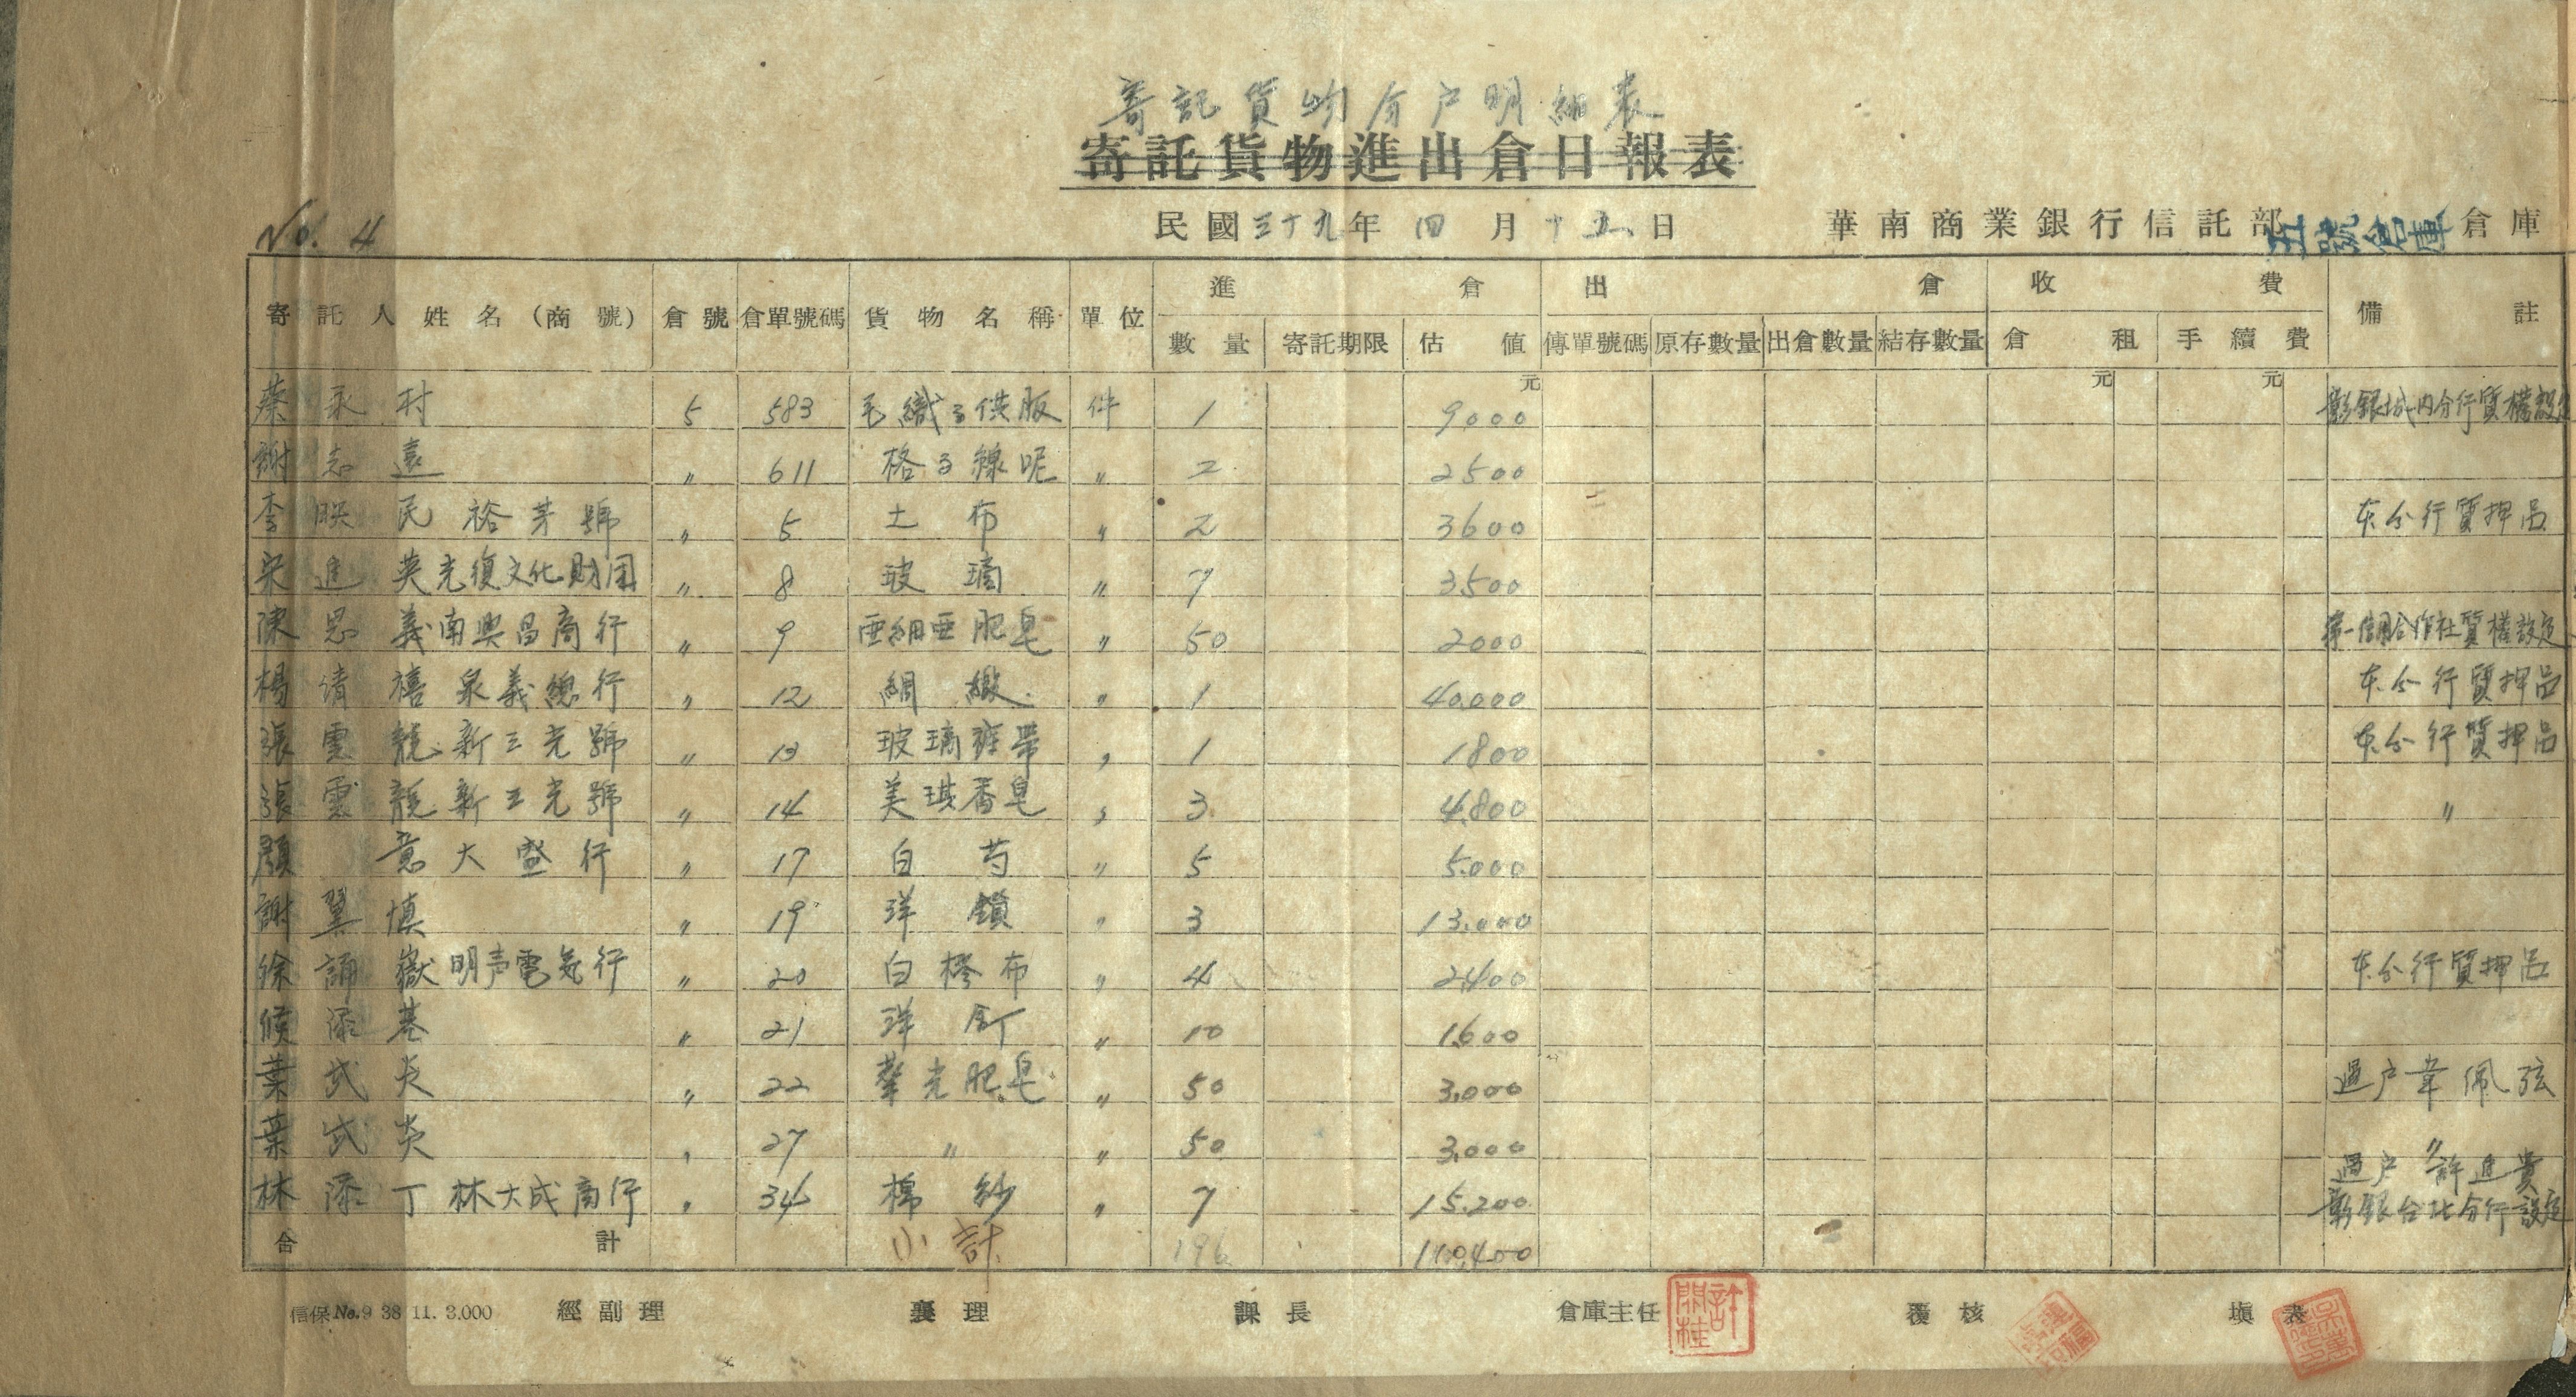 寄託貨物分户明細表
寄託貨物進出倉日報表
No. 4
民國三十九年四月十五日
華南商業銀行信託部五號倉庫倉庫
寄託人姓名(商號) 倉號 倉單號碼 貨物名稱 單位 進倉 出倉 收費 備註
數量 寄託期限 估值 傳單號碼 原存數量 出倉數量 結存數量 倉租 手續費
元 元 元
蔡永村 5 583 毛織 件 1 9000 彰銀城內分行質權設定
謝志遠 〃 611 格子線呢 〃 2 2500
李映民 裕芽號 〃 5 土布 〃 2 3600 本分行質押品
進英光復文化財団 〃 8 玻璃 〃 7 3500
陳思義南興昌商行 〃 9 亜細亜肥皂 〃 50 2000 第一信用合作社質權設定
楊清禧 泉義總行 〃 12 1 40,000 本分行質押品
張雲龍新三光號 〃 13 玻璃 帶 〃 1 1800 本分行質押品
張雲龍新三光號 〃 14 美琪香皂 〃 3 4,800 〃
顏意大盛行 〃 17 白芍 〃 5 5.000
謝翼慎 〃 19 洋鎖 〃 3 13,000
徐誦嶽明声電気行 〃 20 白 布 〃 4 2,400 本分行質押品
候添基 〃 21 洋釘 〃 10 1,600
葉武炎 〃 22 肥皂 〃 50 3,000 過户韋佩弦
葉武炎 〃 27 〃 〃 50 3,000 〃
過户許進貴
林添丁 林大成商行 〃 34 棉紗 〃 7 15.200 彰銀台北分行設定
合計 小計 196 110,400
信保No.9 38 11. 3.000 經副理 襄理 課長 倉庫主任 許開桂 覆核 塡表